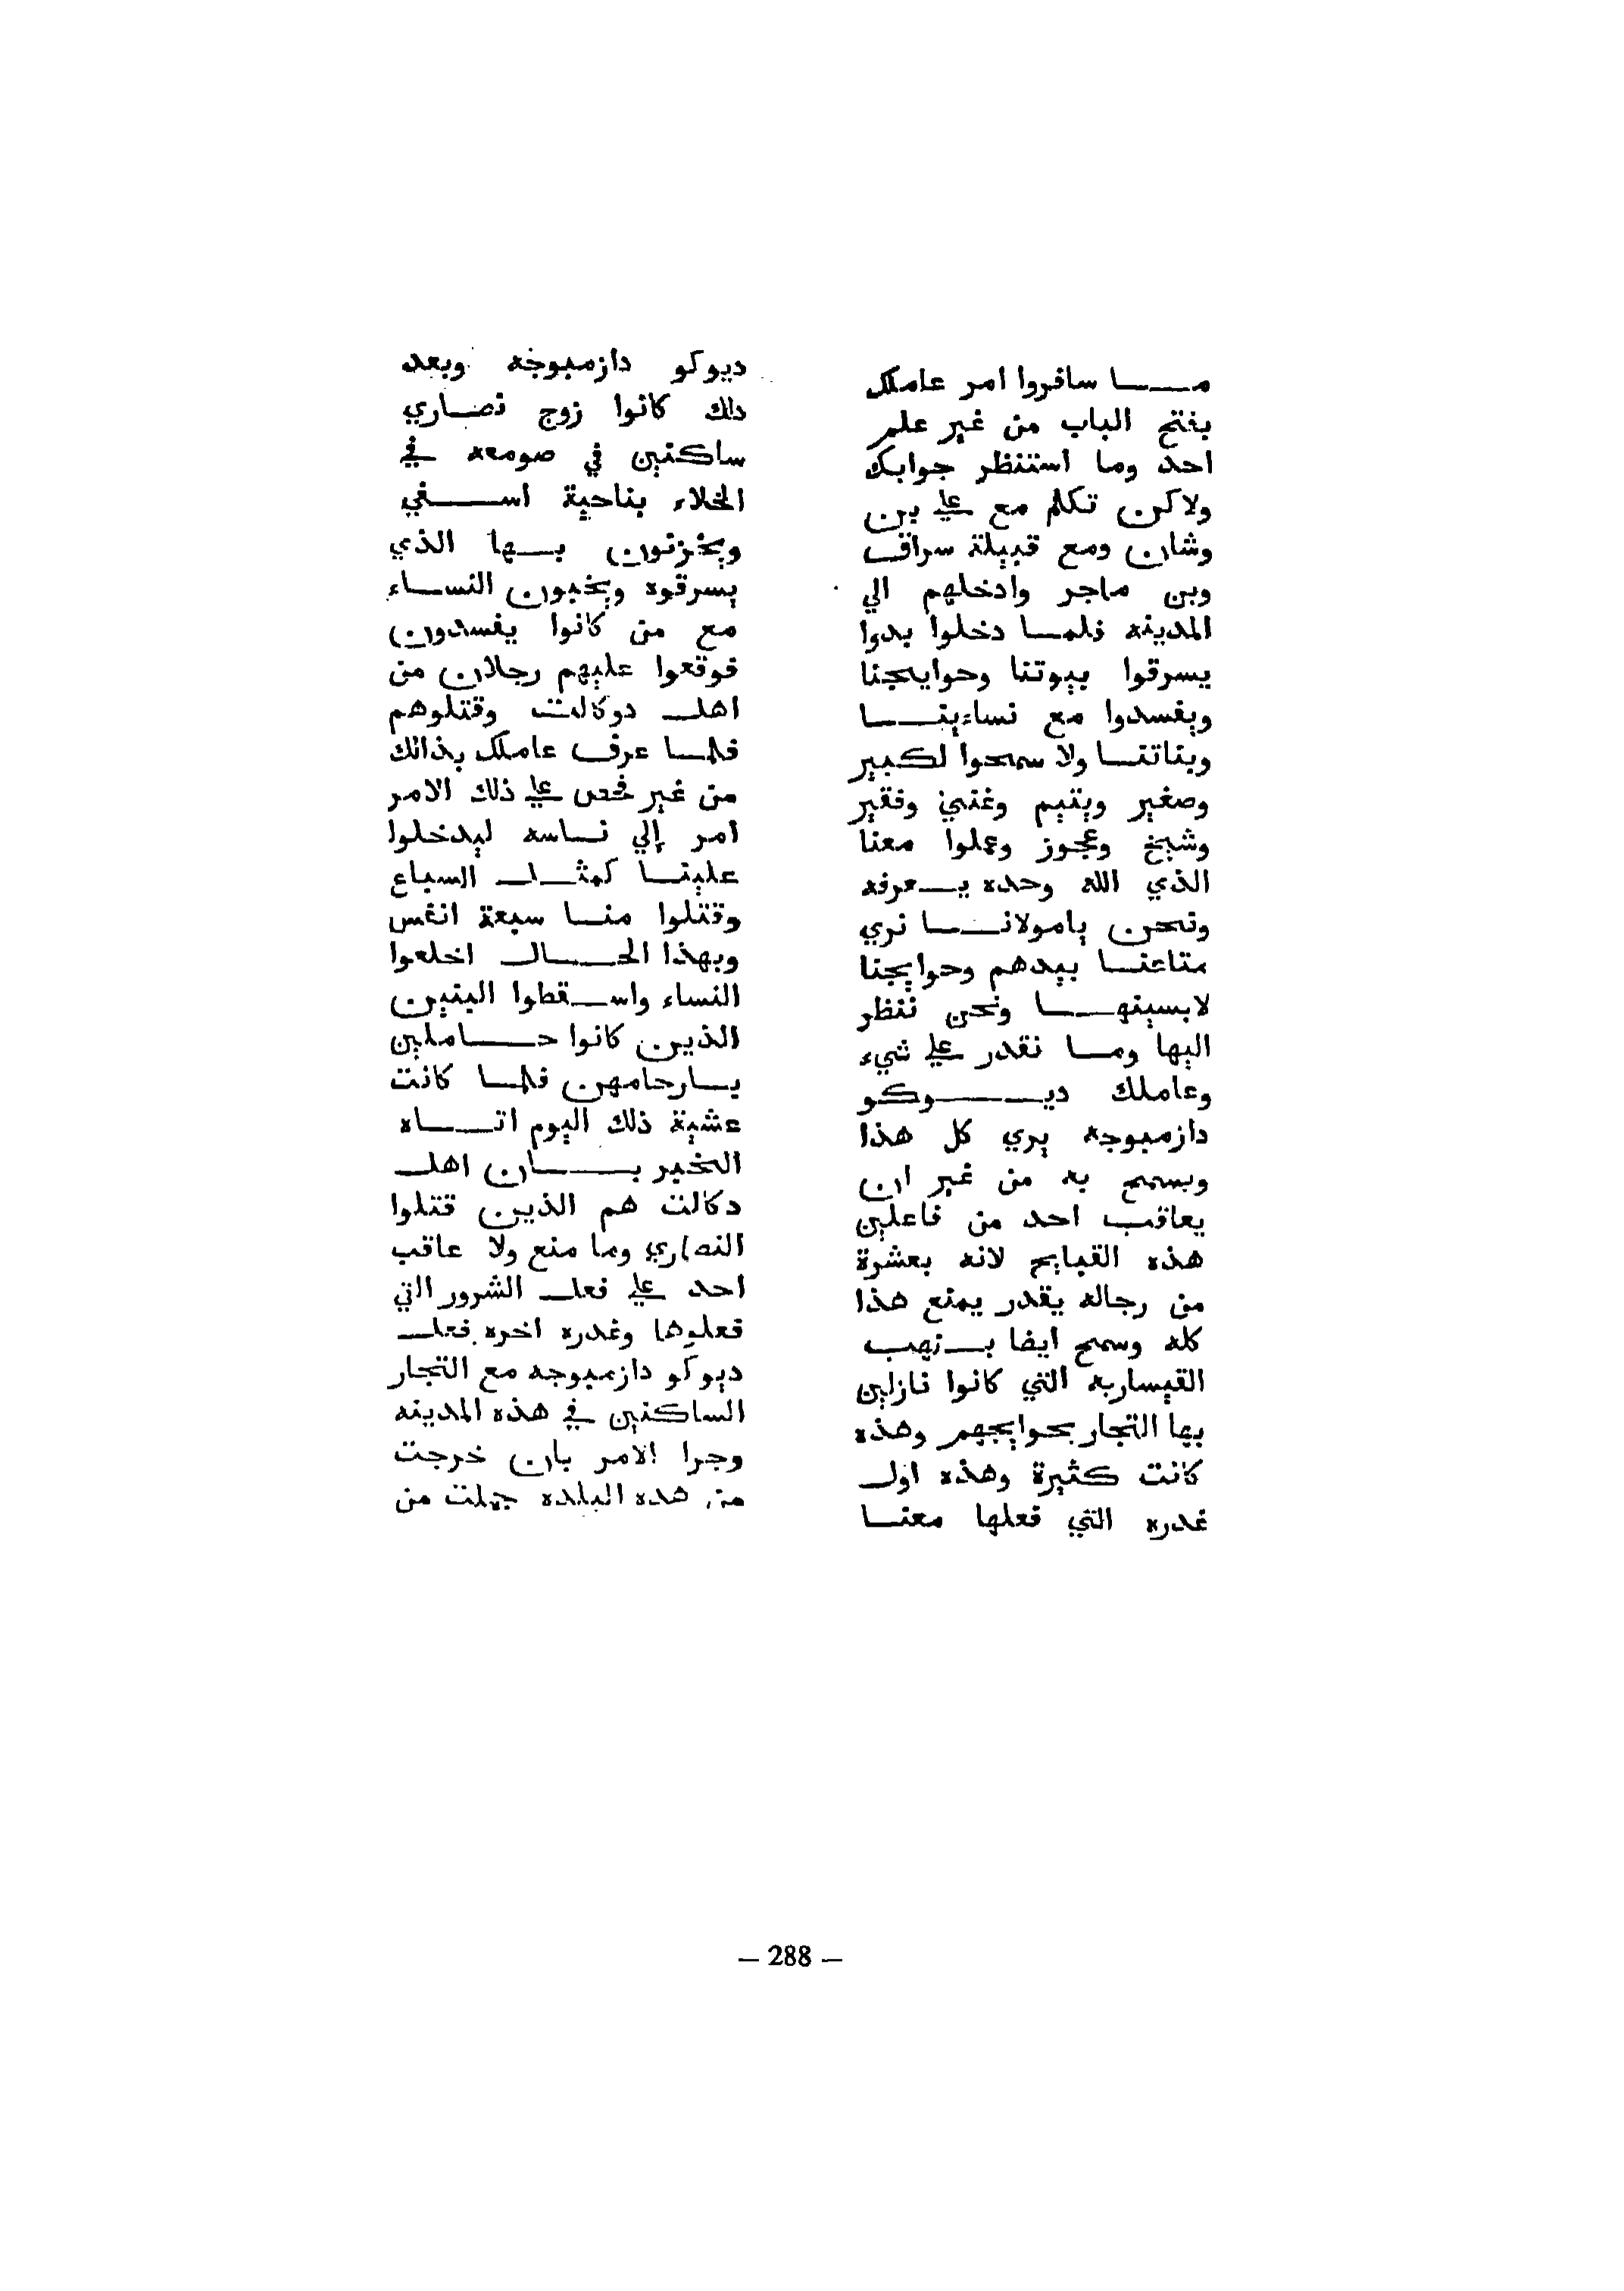 مــا سافروا امر عاملك
بفتح الباب من غير علم
احد وما استنظر جوابك
ولاكن تكلم مع علي بن
وشان ومع قبيلة سراق
وبن ماجر وادخلهم الي
المدينه فلمــا دخلوا بدوا
يسرقوا بيوتنا وحوايجنا
ويفسدوا مع نساءينــا
وبناتنــا ولا سمحوا لكبير
وصغير ويتيم وغني وفقير
وشيخ وعجوز وعملوا معنا
الذي الله وحده يــعرفه
ونحن يامولانــا نري
متاعنــا بيدهم وحوايجنا
لابسينهــا ونحن ننظر
اليها ومــا نقدر علي شيء
وعاملك ديــوكو
دازمبوجه يري كل هذا
ويسمح به من غير ان
يعاقب احد من فاعلين
هذه القبايح لانه بعشرة
من رجاله يقدر يمنع هذا
كله وسمح ايضا بــنهب
القيساريه التي كانوا نازلين
بها التجار بحوايجهم وهذه
كانت كثيرة وهذه اول
غدره التي فعلها معنــا
ديوكو دازمبوجه وبعد
دلك كانوا زوج نصــاري
ساكنين في صومعه في
الخلاء بناحية اســفي
ويخزنون بــها الذي
يسرقوه ويخبون النســاء
مع من كانوا يفسدون
فوقعوا عليهم رجلان من
اهل دوكالت وقتلوهم
فلمــا عرف عاملك بذالك
من غير فحص علي ذلك الامر
امر إلي نــاسه ليدخلوا
علينــا كمثــل السباع
وقتلوا منــا سبعة انفس
وبهذا الحــال اخلعوا
النساء واســقطوا البنين
الذين كانوا حــاملين
بــارحامهن فلمــا كانت
عشية ذلك اليوم اتــاه
الخبر بــان اهل
دكالت هم الذين قتلوا
النصاري وما منع ولا عاقب
احد علي فعل الشرور التي
فعلوها وغدره اخره فعل
ديوكو دازمبوجه مع التجار
الساكنين في هذه المدينه
وجرا الامر بان خرجت
من هده البلده جملت من
— 288 —